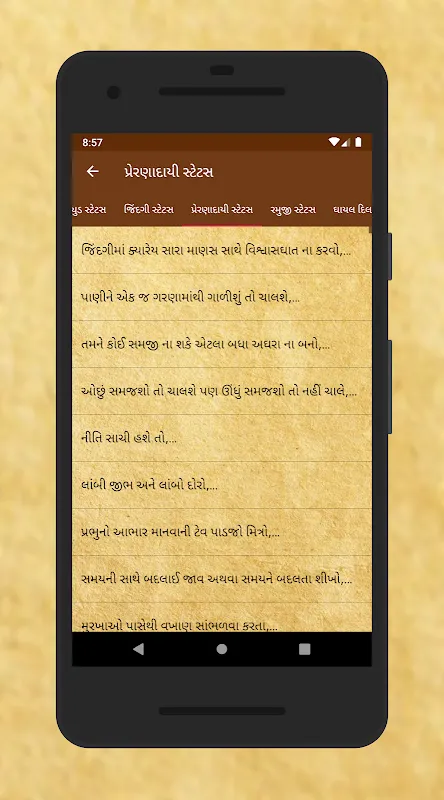 8:57
પ્રેરણાદાયી સ્ટેટસ
યુડ સ્ટેટસ જિંદગી સ્ટેટસ પ્રેરણાદાયી સ્ટેટસ રમુજી સ્ટેટસ ઘાયલ દિલ
જિંદગીમાં ક્યારેય સારા માણસ સાથે વિશ્વાસઘાત ના કરવો,...
પાણીને એક જ ગરણામાંથી ગાળીશું તો ચાલશે,...
તમને કોઈ સમજી ના શકે એટલા બધા અઘરા ના બનો,...
ઓછું સમજશો તો ચાલશે પણ ઊંધું સમજશો તો નહીં ચાલે,...
નીતિ સાચી હશે તો,...
લાંબી જીભ અને લાંબો દોરો,...
પ્રભુનો આભાર માનવાની ટેવ પાડજો મિત્રો,...
સમયની સાથે બદલાઈ જાવ અથવા સમયને બદલતા શીખો,...
મૂરખાઓ પાસેથી વખાણ સાંભળવા કરતા,...